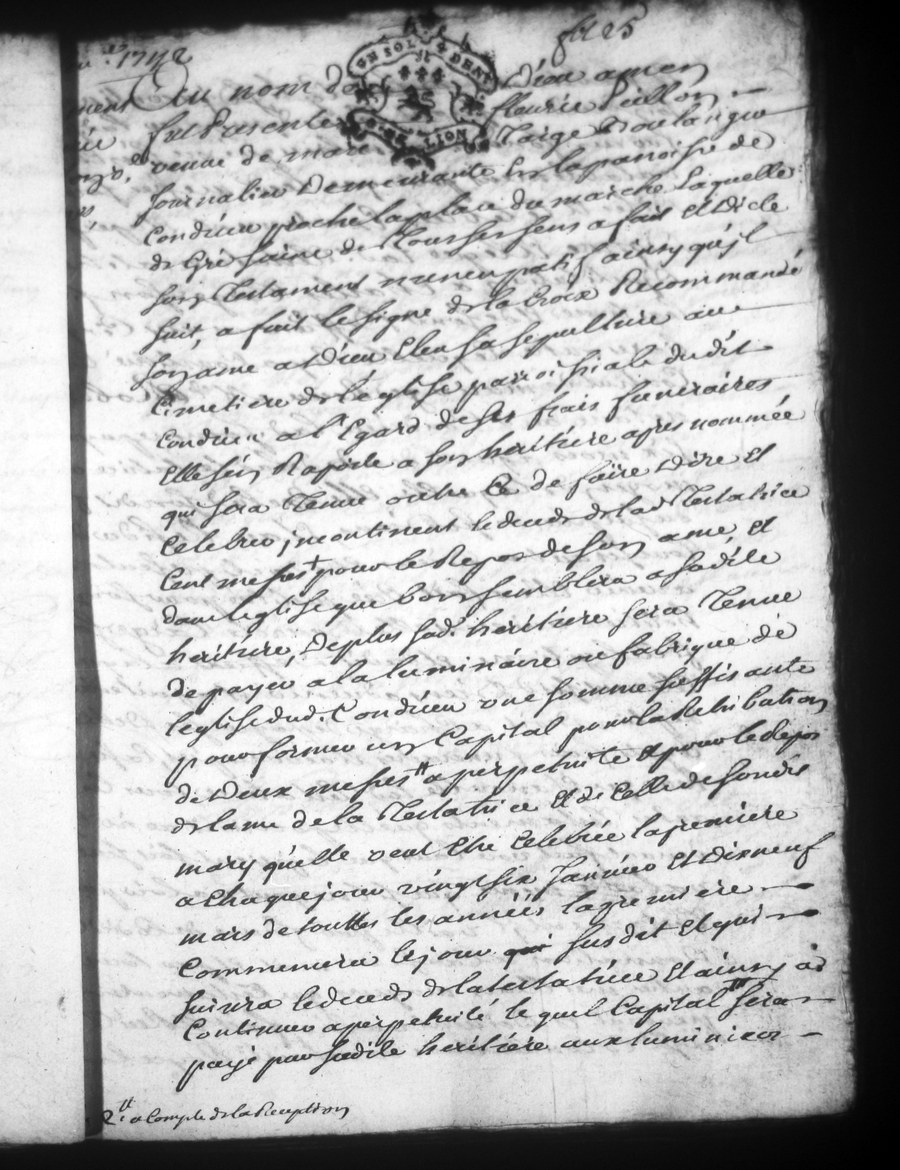 1742
8bre 25
UN SOL 4 DEN
G. DE LION
Au nom de Dieu amen
fut presente fleurie Peillon
veuve de marc Targe Boulangue
journalier demeurante en la paroisse de
Condrieu proche la place du marche laquelle
de gré saine de tous ses sens a fait et dicté
son testament nuncupatif ainsy qu'jl
suit, a fait le signe de la croix Recommandé
son ame a Dieu Eleu sa sepulture au
Cimetiere de l'eglise parroissiale dudit
Condrieu a l'Egard de ses frais funeraires
Elle s'en Raporte a son heritiere apres nommée
qui sera Tenue outre ce de faire dire et
Celebrer jncontinent le deceds de lad. Testatrice
Cent messes pour le Repos de son ame, et
dans l'eglise que bon semblera a sadite
heritiere, De plus sad. heritiere sera Tenue
de payer a la luminaire ou fabrique de
l'eglise dud. Condrieu une somme suffisante
pour former un Capital pour la Retribution
de Deux messes a perpetuite et pour le Repos
de l'ame de la Testatrice et de Celle de sondit
mary qu'elle veut etre Celebrée la premiere
a Chaque jour vingt six Janvier et dixneuf
mars de touttes les années la premiere
Commencera le jour qui susdit et qui
suivra le deceds de la testatrice et ainsy a
Continuer a perpetuité lequel Capital sera
payé par sadite heritiere aux luminier
2tt a Compte de la Reception